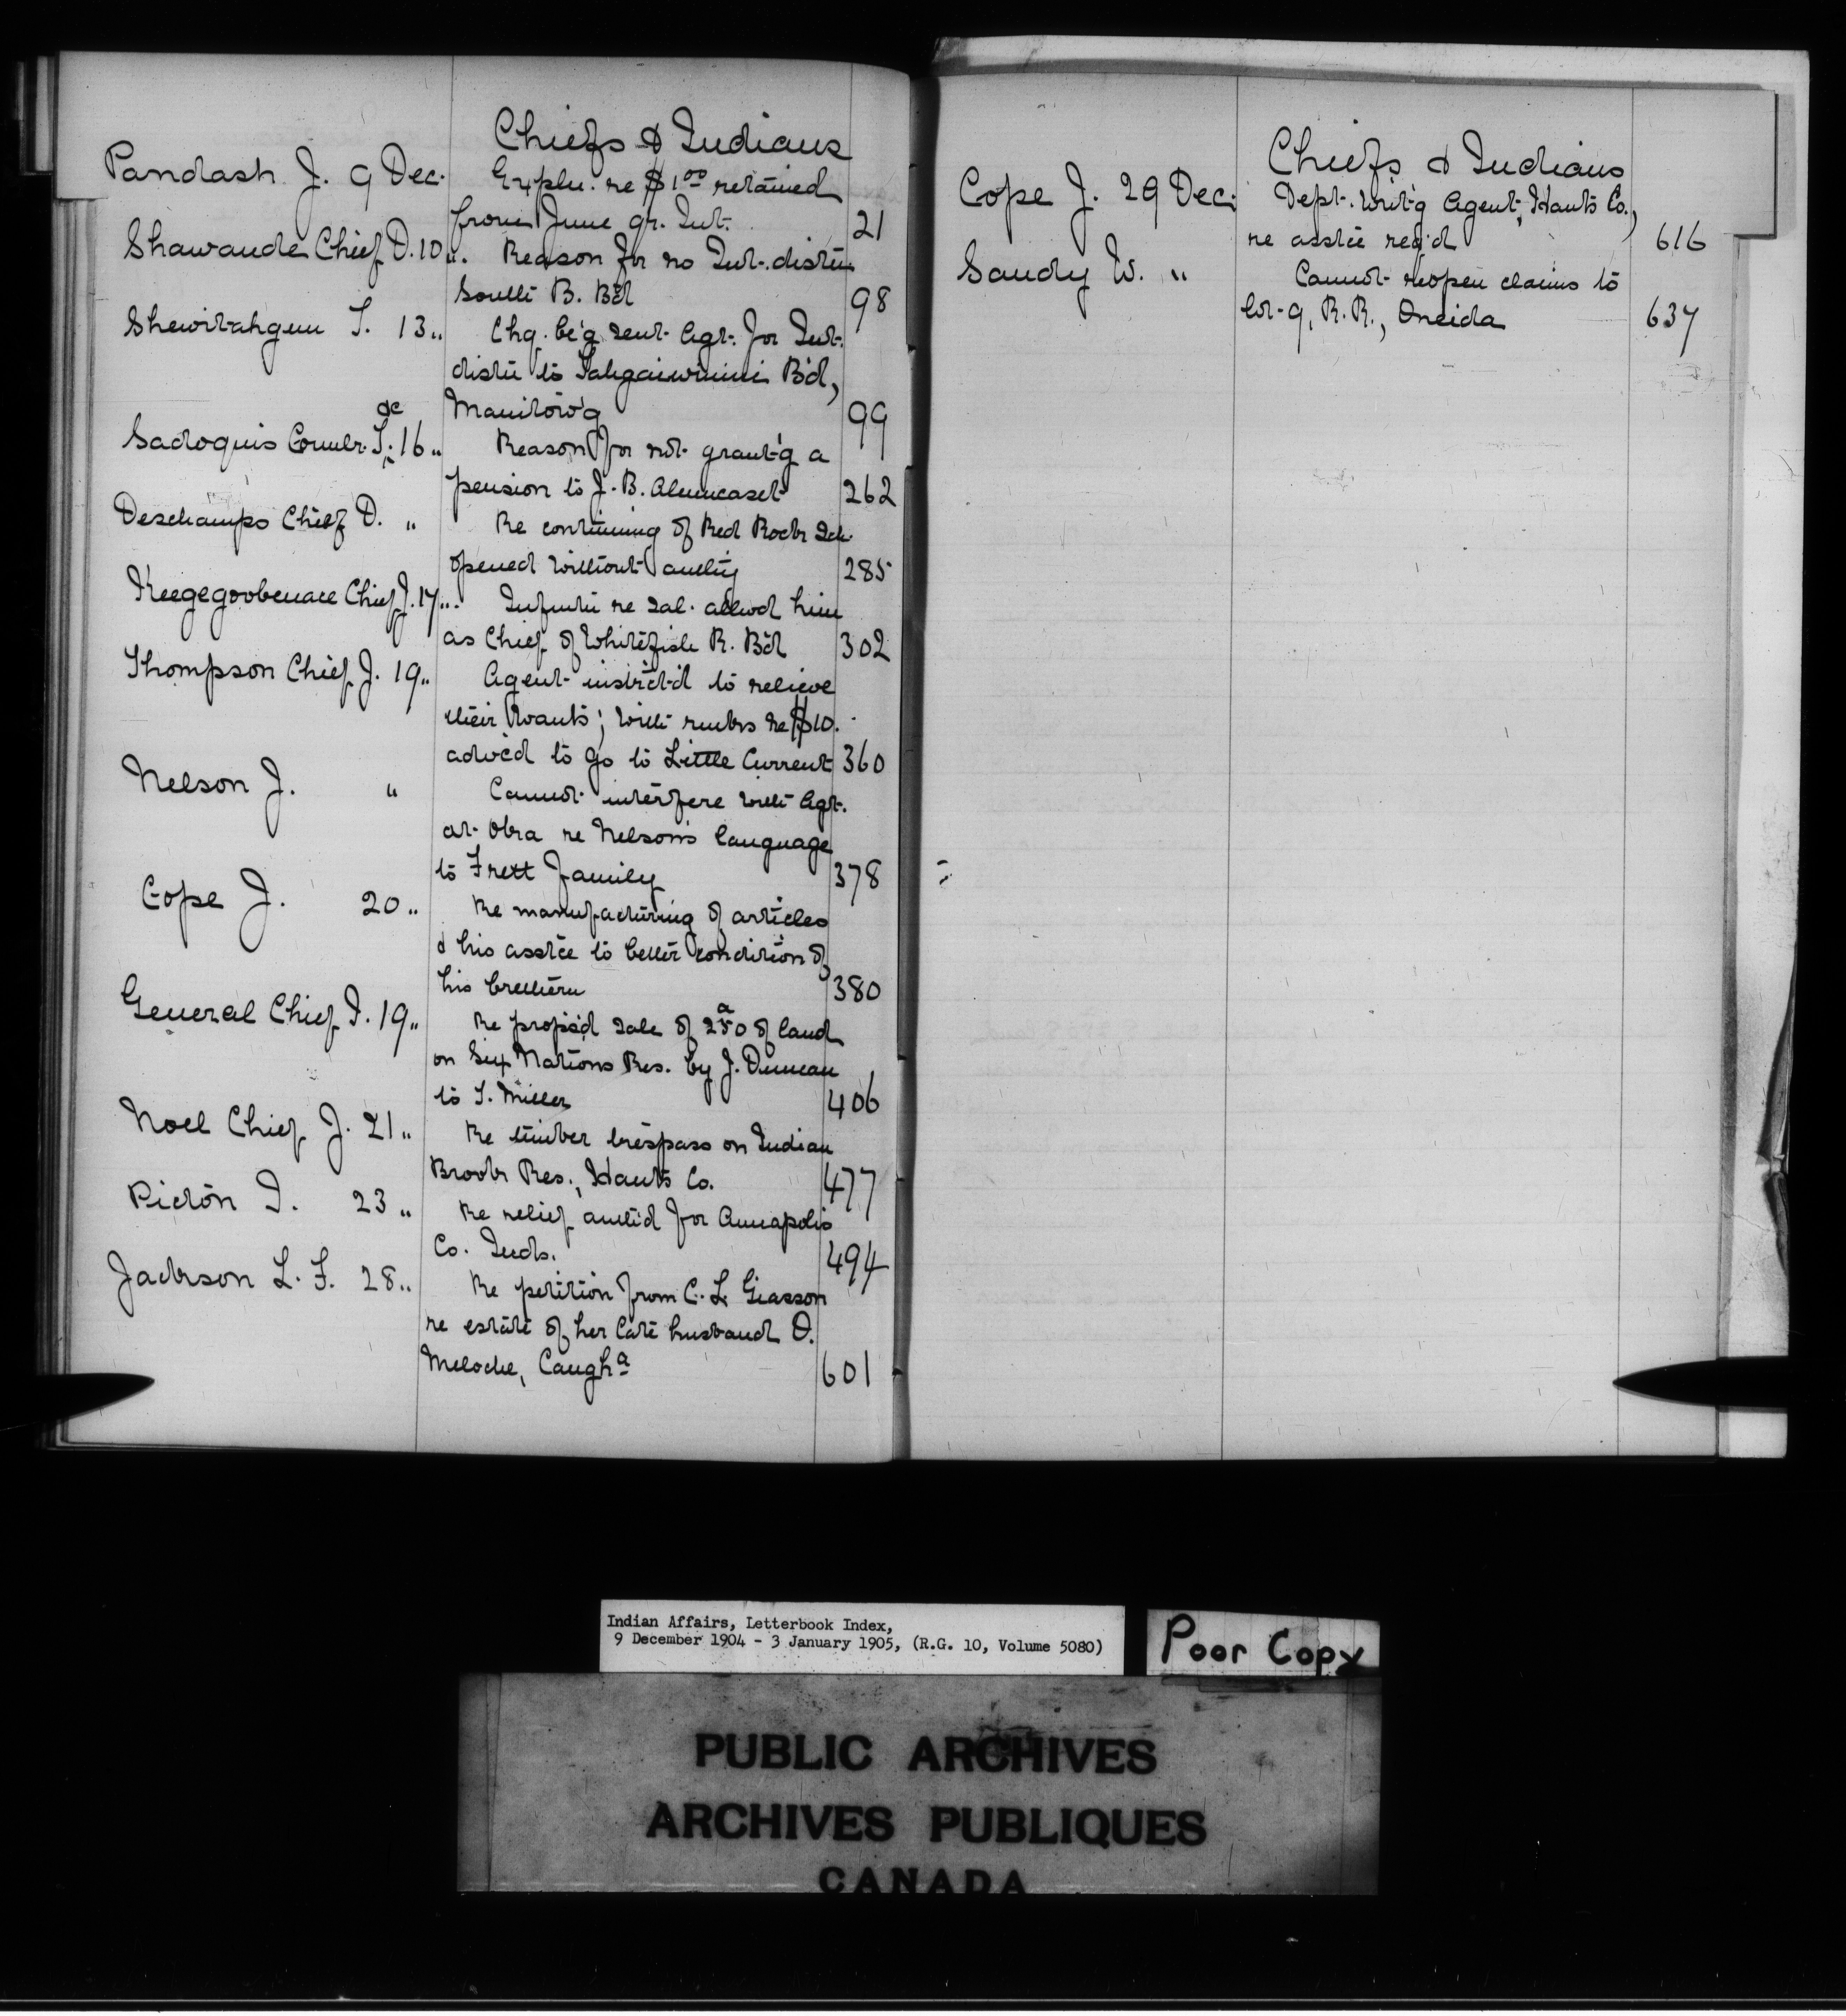 Chiefs & Indians
Pandash J. 9 Dec. Expln. re $1.00 retained
from June qr. Int. 21
Shawande Chief D. 10 " Reason for no Int. distn
South B. B'd 98
Shewitahgun S. 13 " Chq. be'g sent Agt. for Int.
distn to Tahgaiwinini B'd,
Manitow'g 99
Sadoquis Counlr. 16 " Reason for not grant'g a
pension to J. B. 262
Deschamps Chief D. " Re continuing of Red Rock Sch.
opened without authy 285
Keegegoobenace Chief J. 17 " Infmtn re sal. allwd him
as Chief of Whitefish R. B'd 302
Thompson Chief J. 19 " Agent instrct'd to relieve
their wants; with rmks re $10.
advc'd to go to Little Current 360
Nelson J. " Cannot interfere with Agt.
at re Nelson's language
to Frett family 378
Cope J. 20 " Re manufacturing of articles
& his asstce to better condition of
his brethern 380
General Chief J. 19 " Re propos'd sale of 250 a of land
on Six Nations Res. by J. Duncan
to T. Miller 406
Noel Chief J. 21 " Re timber trespass on Indian
Brook Res., Hants Co. 477
Picton J. 23 " Re relief auth'd for Annapolis
Co. Inds. 494
Jackson L. F. 28 " Re petition from C. L. Giasson
re estate of her late husband O.
Meloche, Caugh a 601
Chiefs & Indians
Cope J. 29 Dec. Dept. writ'g Agent, Hants Co.,
re asstce req'd 616
Sandy W. " Cannot reopen claims to
lot 9, R. R., Oneida 637
Indian Affairs, Letterbook Index,
9 December 1904 - 3 January 1905, (R.G. 10, Volume 5080)
Poor Copy
PUBLIC ARCHIVES
ARCHIVES PUBLIQUES
CANADA